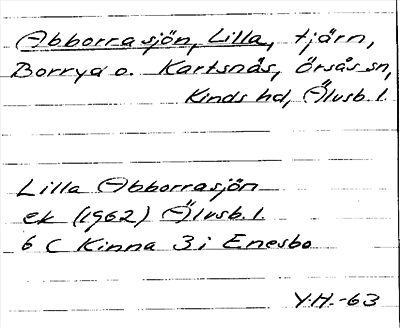 Abborrasjön, Lilla, tjärn,
Borrya o. Kartsnäs, Örsås sn,
Kinds hd, Älvsb. l.
Lilla Abborrasjön
ek (1962) Älvsb. l
6 C Kinna 3 i Enesbo
Y.H.-63